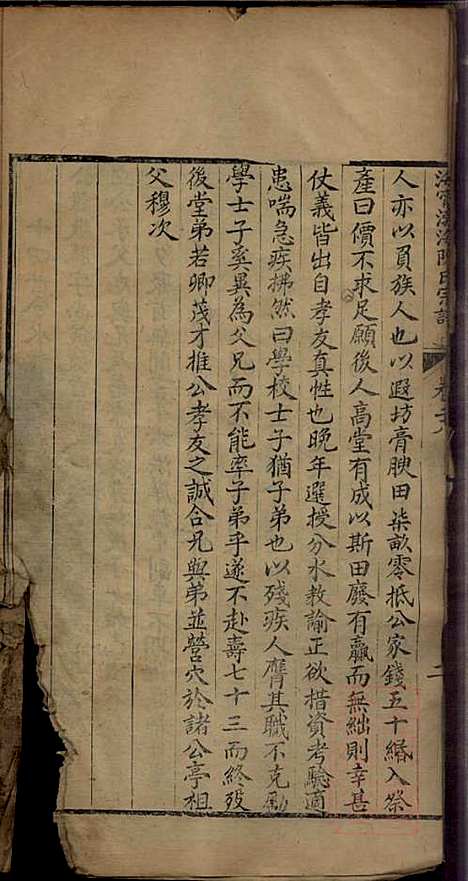 海寧渤海陳氏宗譜 卷二十八 二
人亦以貟族人也以遐坊膏腴田柒畝零抵公家錢五十緡入祭
產曰價不求足願後人高堂有成以斯田廢有贏而無絀則幸甚
仗義皆出自孝友真性也晚年選授分水教諭正欲措資考驗適
患喘急疾拂然曰學校士子猶子弟也以殘疾人膺其職不克勵
學士子奚異為父兄而不能率子弟乎遂不赴壽七十三而終歿
後堂弟若卿茂才推公孝友之誠合兄與弟並營穴於諸公亭祖
父穆次